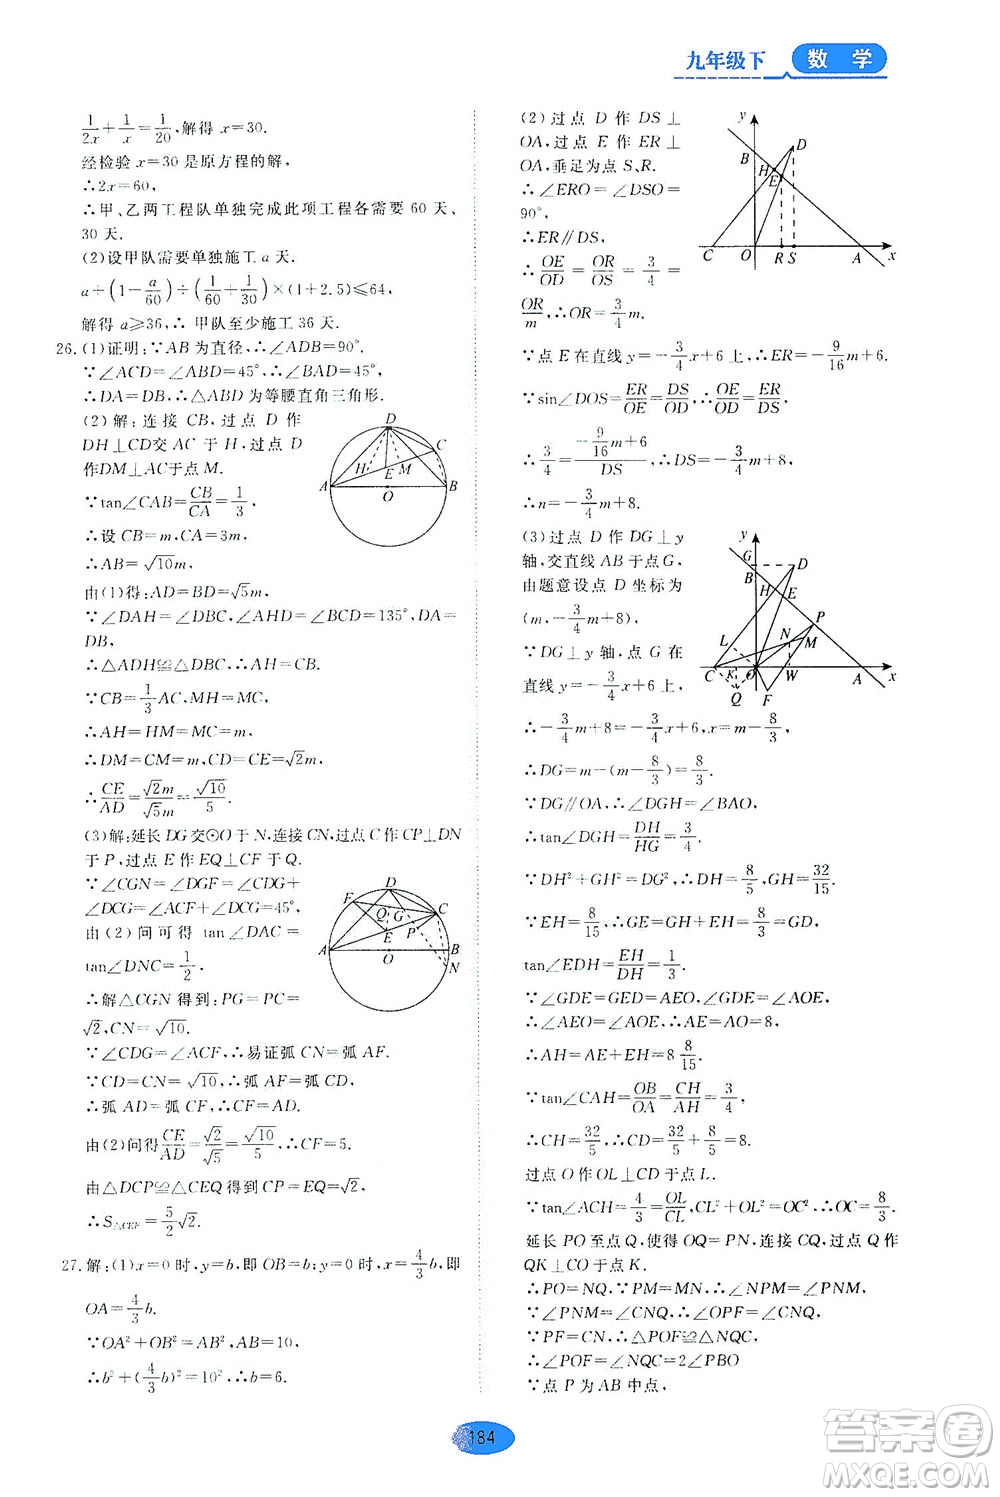 九年级下 数 学
1/(2x)+1/x=1/20,解得 x=30.
经检验 x=30 是原方程的解,
∴2x=60,
∴甲、乙两工程队单独完成此项工程各需要 60 天、
30 天.
(2)设甲队需要单独施工 a 天.
a÷(1-a/60)÷(1/60+1/30)×(1+2.5)≤64,
解得 a≥36,∴ 甲队至少施工 36 天.
26.(1)证明:∵AB 为直径,∴∠ADB=90°.
∵∠ACD=∠ABD=45°,∴∠BAD=45°.
∴DA=DB,∴△ABD 为等腰直角三角形.
(2)解:连接 CB,过点 D 作
DH⊥CD交 AC 于 H,过点 D
作DM⊥AC于点 M.
∵tan∠CAB=CB/CA=1/3,
∴设 CB=m,CA=3m,
∴AB=√10m,
由(1)得:AD=BD=√5m,
∵∠DAH=∠DBC,∠AHD=∠BCD=135°,DA=
DB,
∴△DAH≌△DBC,
∵CB=1/3AC,MH=MC,
∴AH=HM=MC=m,
∴DM=CM=m,CD=CE=√2m,
∴CE/AD=√2m/√5m=√10/5.
(3)解:延长 DG交⊙O于 N,连接 CN,过点 C作CP⊥DN
于 P,过点 E 作 EQ⊥CF 于 Q.
∵∠CGN=∠DGF=∠CDG+
∠DCG=∠ACF+∠DCG=45°,
由(2)问可得 tan∠DAC=
tan∠DNC=1/2,
∴解△CGN 得到:PG=PC=
√2,CN=√10,
∵∠CDG=∠ACF,∴易证弧 CN=弧 AF.
∵CD=CN=√10,∴弧 AF=弧 CD,
∴弧 AD=弧 CF,∴CF=AD,
由(2)问得CE/AD=√2/√5=√10/5,∴CF=5,
由△DCP≌△CEQ 得到 CP=EQ=√2,
∴S△CEF=5/2√2.
27.解:(1)x=0 时,y=b,即 OB=b;y=0 时,x=4/3b,即
OA=4/3b.
∵OA²+OB²=AB²,AB=10,
∴b²+(4/3b)²=10²,∴b=6.
(2)过点 D 作 DS⊥
OA,过点 E 作 ER⊥
OA,垂足为点 S、R.
∴∠ERO=∠DSO=
90°,
∴ER∥DS,
∴OE/OD=OR/OS=3/4=
OR/m,∴OR=3/4m.
∵点 E 在直线 y=-3/4x+6 上,∴ER=-9/16m+6.
∵sin∠DOS=ER/OE=DS/OD,∴OE/OD=ER/DS,
∴3/4=(-9/16m+6)/DS,∴DS=-3/4m+8,
∴n=-3/4m+8.
(3)过点 D 作 DG⊥y
轴,交直线 AB 于点 G,
由题意设点 D 坐标为
(m,-3/4m+8),
∵DG⊥y 轴,点 G 在
直线 y=-3/4x+6 上,
∴-3/4m+8=-3/4x+6,x=m-8/3,
∴DG=m-(m-8/3)=8/3.
∵DG∥OA,∴∠DGH=∠BAO,
∴tan∠DGH=DH/HG=3/4.
∵DH²+GH²=DG²,∴DH=8/5,GH=32/15.
∵EH=8/15,∴GE=8/15+32/15=8/3=GD,
tan∠EDH=EH/DH=1/3.
∵∠GDE=GED=AEO,∠GDE=∠AOE.
∴∠AEO=∠AOE,∴AE=AO=8,
∴AH=AE+EH=8 8/15.
∵tan∠CAH=OB/OA=CH/AH=3/4,
∴CH=32/5,∴CD=32/5+8/5=8.
过点 O 作 OL⊥CD 于点 L.
∵tan∠ACH=4/3=OL/CL,CL²+OL²=OC²,OC=8/3.
延长 PO至点 Q,使得 OQ=PN,连接 CQ,过点 Q作
QK⊥CO于点 K.
∴PO=NQ.∵PM=MN,∠MPN=∠PNM,
∵∠PFN=∠CNQ,∴∠OPF=∠CNQ,
∵PF=CN,∴△POF≌△NQC,
∴∠POF=∠NQC=2∠PAO
∵点 P 为AE中点,
184
答案圈
MXQE.COM